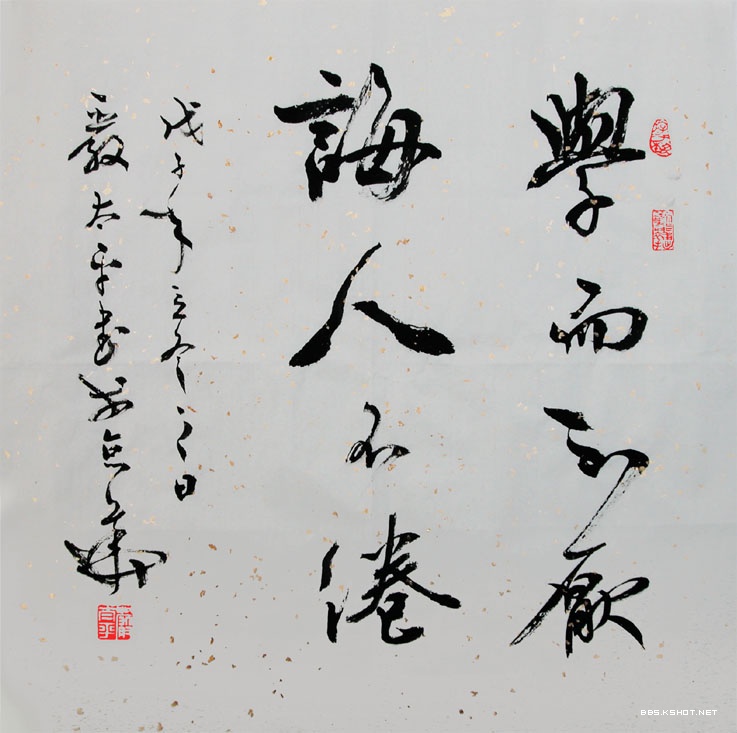 學而不厭
誨人不倦
戊子年立冬之日
嚴太平書於京華
BBS.KSHOT.NET